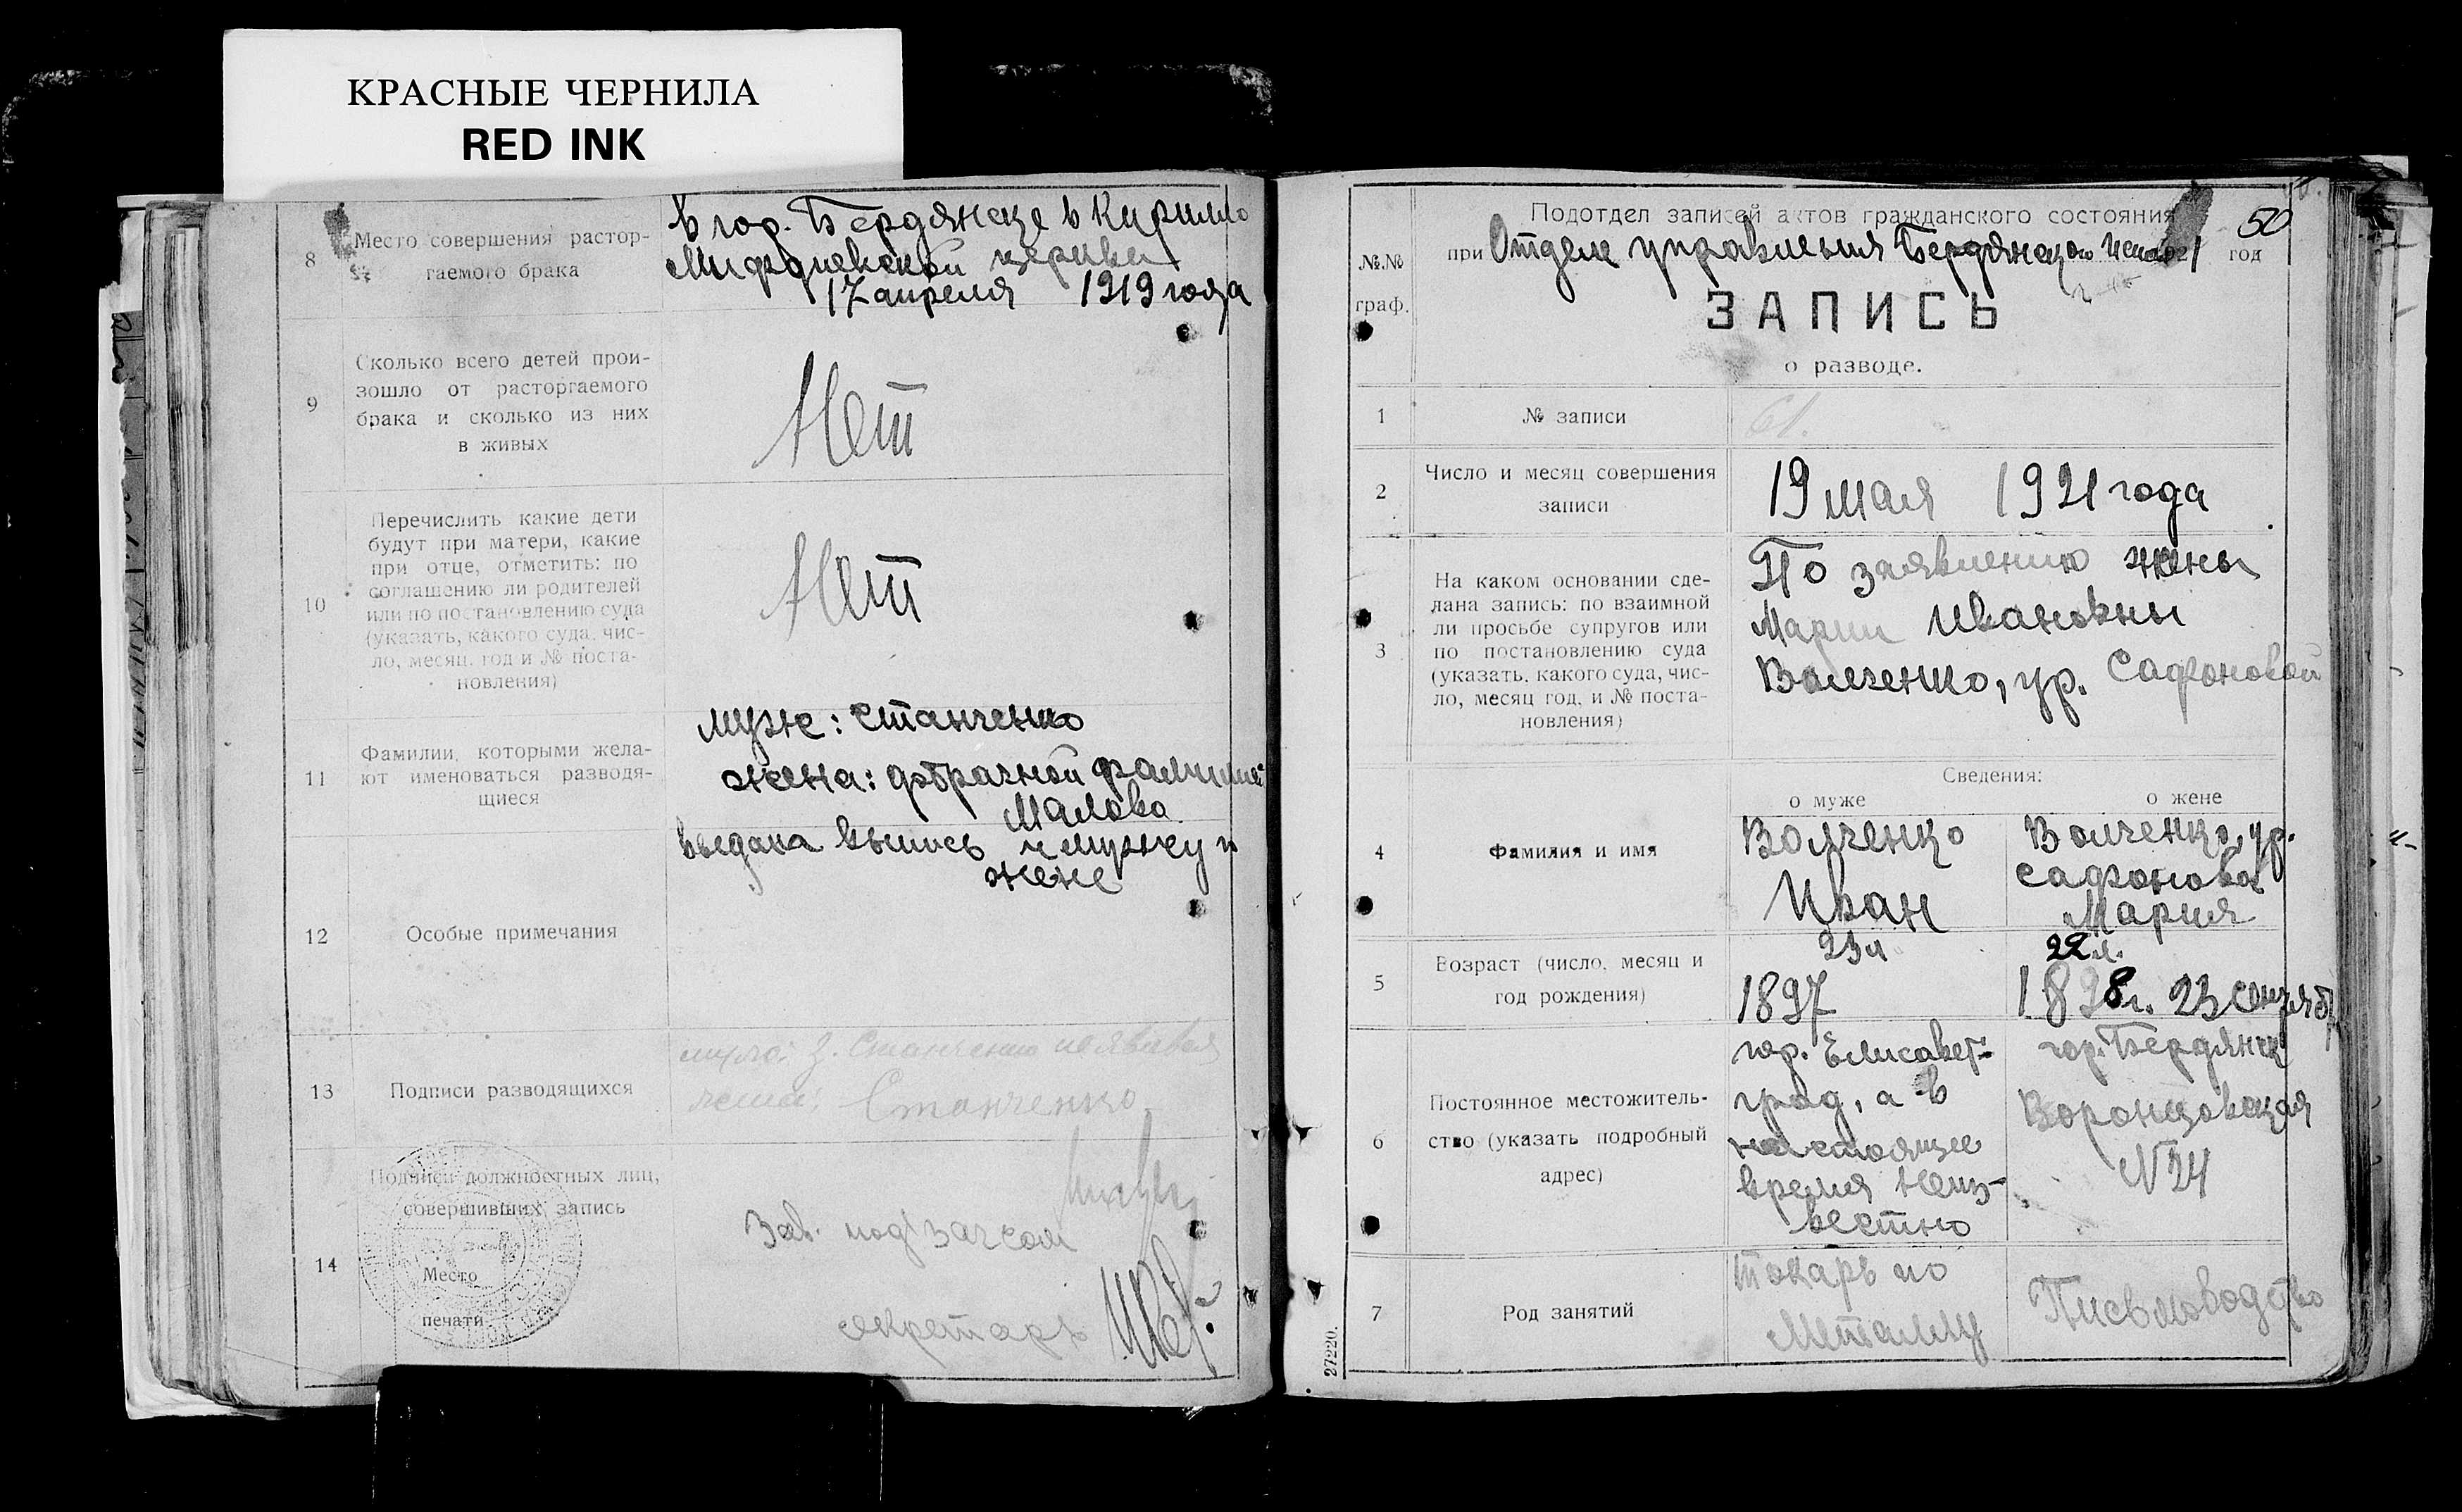 КРАСНЫЕ ЧЕРНИЛА
RED INK
8
Место совершения растор-
гаемого брака
в гор. Бердянске в Кирилло
Мифодиевской церкви
17 апреля 1919 года
9
Сколько всего детей прои-
зошло от расторгаемого
брака и сколько из них
в живых
Нет
10
Перечислить какие дети
будут при матери, какие
при отце, отметить: по
соглашению ли родителей
или по постановлению суда
(указать, какого суда, чис-
ло, месяц, год и № поста-
новления)
Нет
11
Фамилии, которыми жела-
ют именоваться разводя-
щиеся
муж: Станченко
жена: добрачной фамилией
Малова
12
Особые примечания
выдана выпись и мужу и
жене
13
Подписи разводящихся
Станченко
жена: Станченко
14
Подписи должностных лиц,
совершивших запись
Место
печати
Зав. подзагсом
секретарь
№№
граф.
Подотдел записей актов гражданского состояния
при Отделе управления Бердянского 1 год
50
ЗАПИСЬ
о разводе.
1
№ записи
61.
2
Число и месяц совершения
записи
19 мая 1921 года
3
На каком основании сде-
лана запись: по взаимной
ли просьбе супругов или
по постановлению суда
(указать, какого суда, чис-
ло, месяц год, и № поста-
новления)
По заявлению жены
Марии Ивановны
Волченко, ур. Сафоновой
Сведения:
о муже
о жене
4
Фамилия и имя
Волченко
Иван
Волченко, ур.
Сафонова
Мария
5
Возраст (число, месяц и
год рождения)
23 л
1897
22 л.
1898 г. 23 сентяб
6
Постоянное местожитель-
ство (указать подробный
адрес)
гор. Елисавет-
град, а в
настоящее
время неиз-
вестно
гор. Бердянск
Воронцовская
№ 24
7
Род занятий
Токарь по
металлу
Писмоводство
27220.